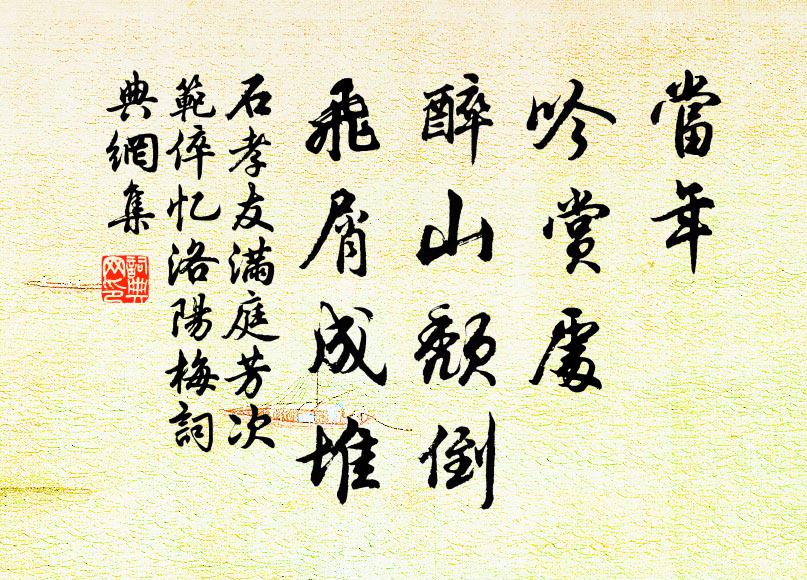 當年
吟賞處
醉山頹倒
飛屑成堆
石孝友滿庭芳次
範倅忆洛陽梅詞
典網集
詞典网印